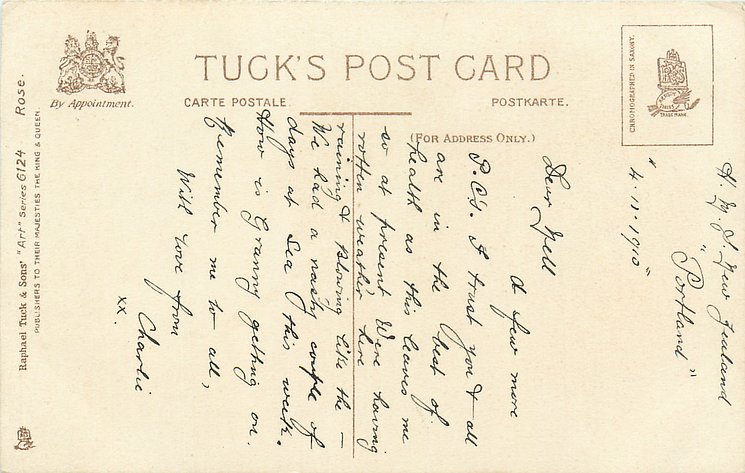 TUCK'S POST CARD
By Appointment.
CARTE POSTALE.
POSTKARTE.
(FOR ADDRESS ONLY.)
CHROMOGRAPHED IN SAXONY.
TRADE MARK.
Raphael Tuck & Sons' "Art" Series 6124 Rose.
PUBLISHERS TO THEIR MAJESTIES THE KING & QUEEN.
H. M. S. New Zealand
"Portland"
"4.11.1910"
Dear Nell
A few more
P.C's. I trust you & all
are in the best of
health as this leaves me
so at present Were having
rotten weather here
raining & blowing like the —
We had a nasty couple of
days at Sea this week.
How is Granny getting on.
Remember me to all,
With love from
Charlie
xx.